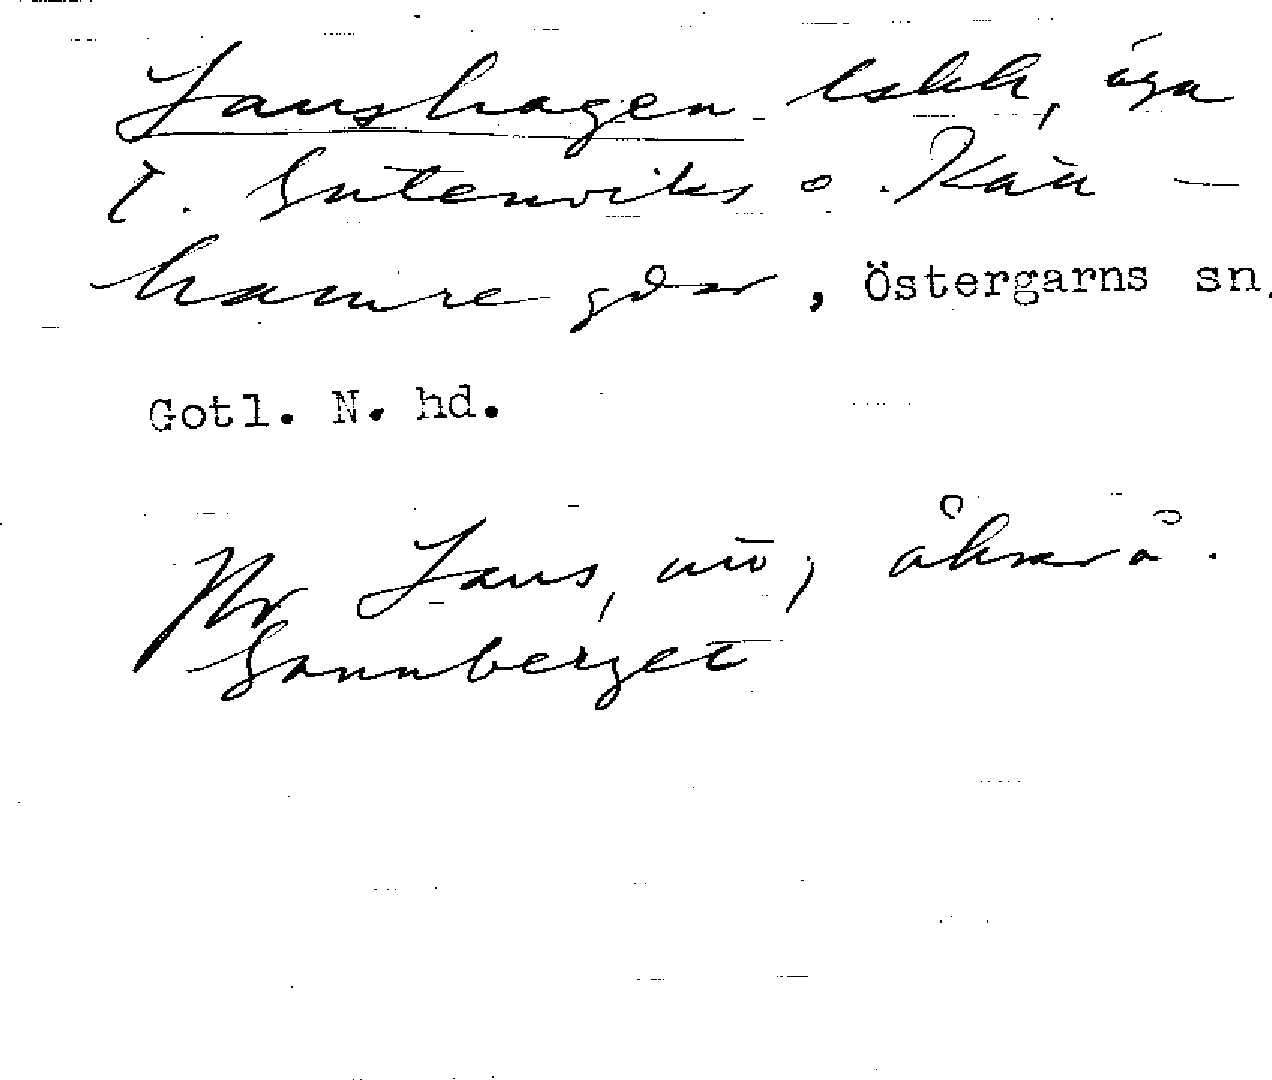 Laushagen lskh, äga
t. Gutenviks o. Kau-
hamre gdar, Östergarns sn,
Gotl. N. hd.
Laus,
åkrar å
Gannberget